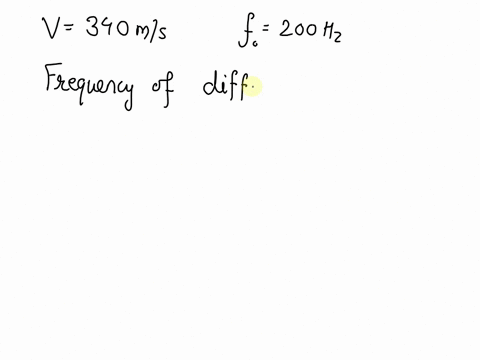 V = 340 m/s f₀ = 200 Hz
Frequency of diff